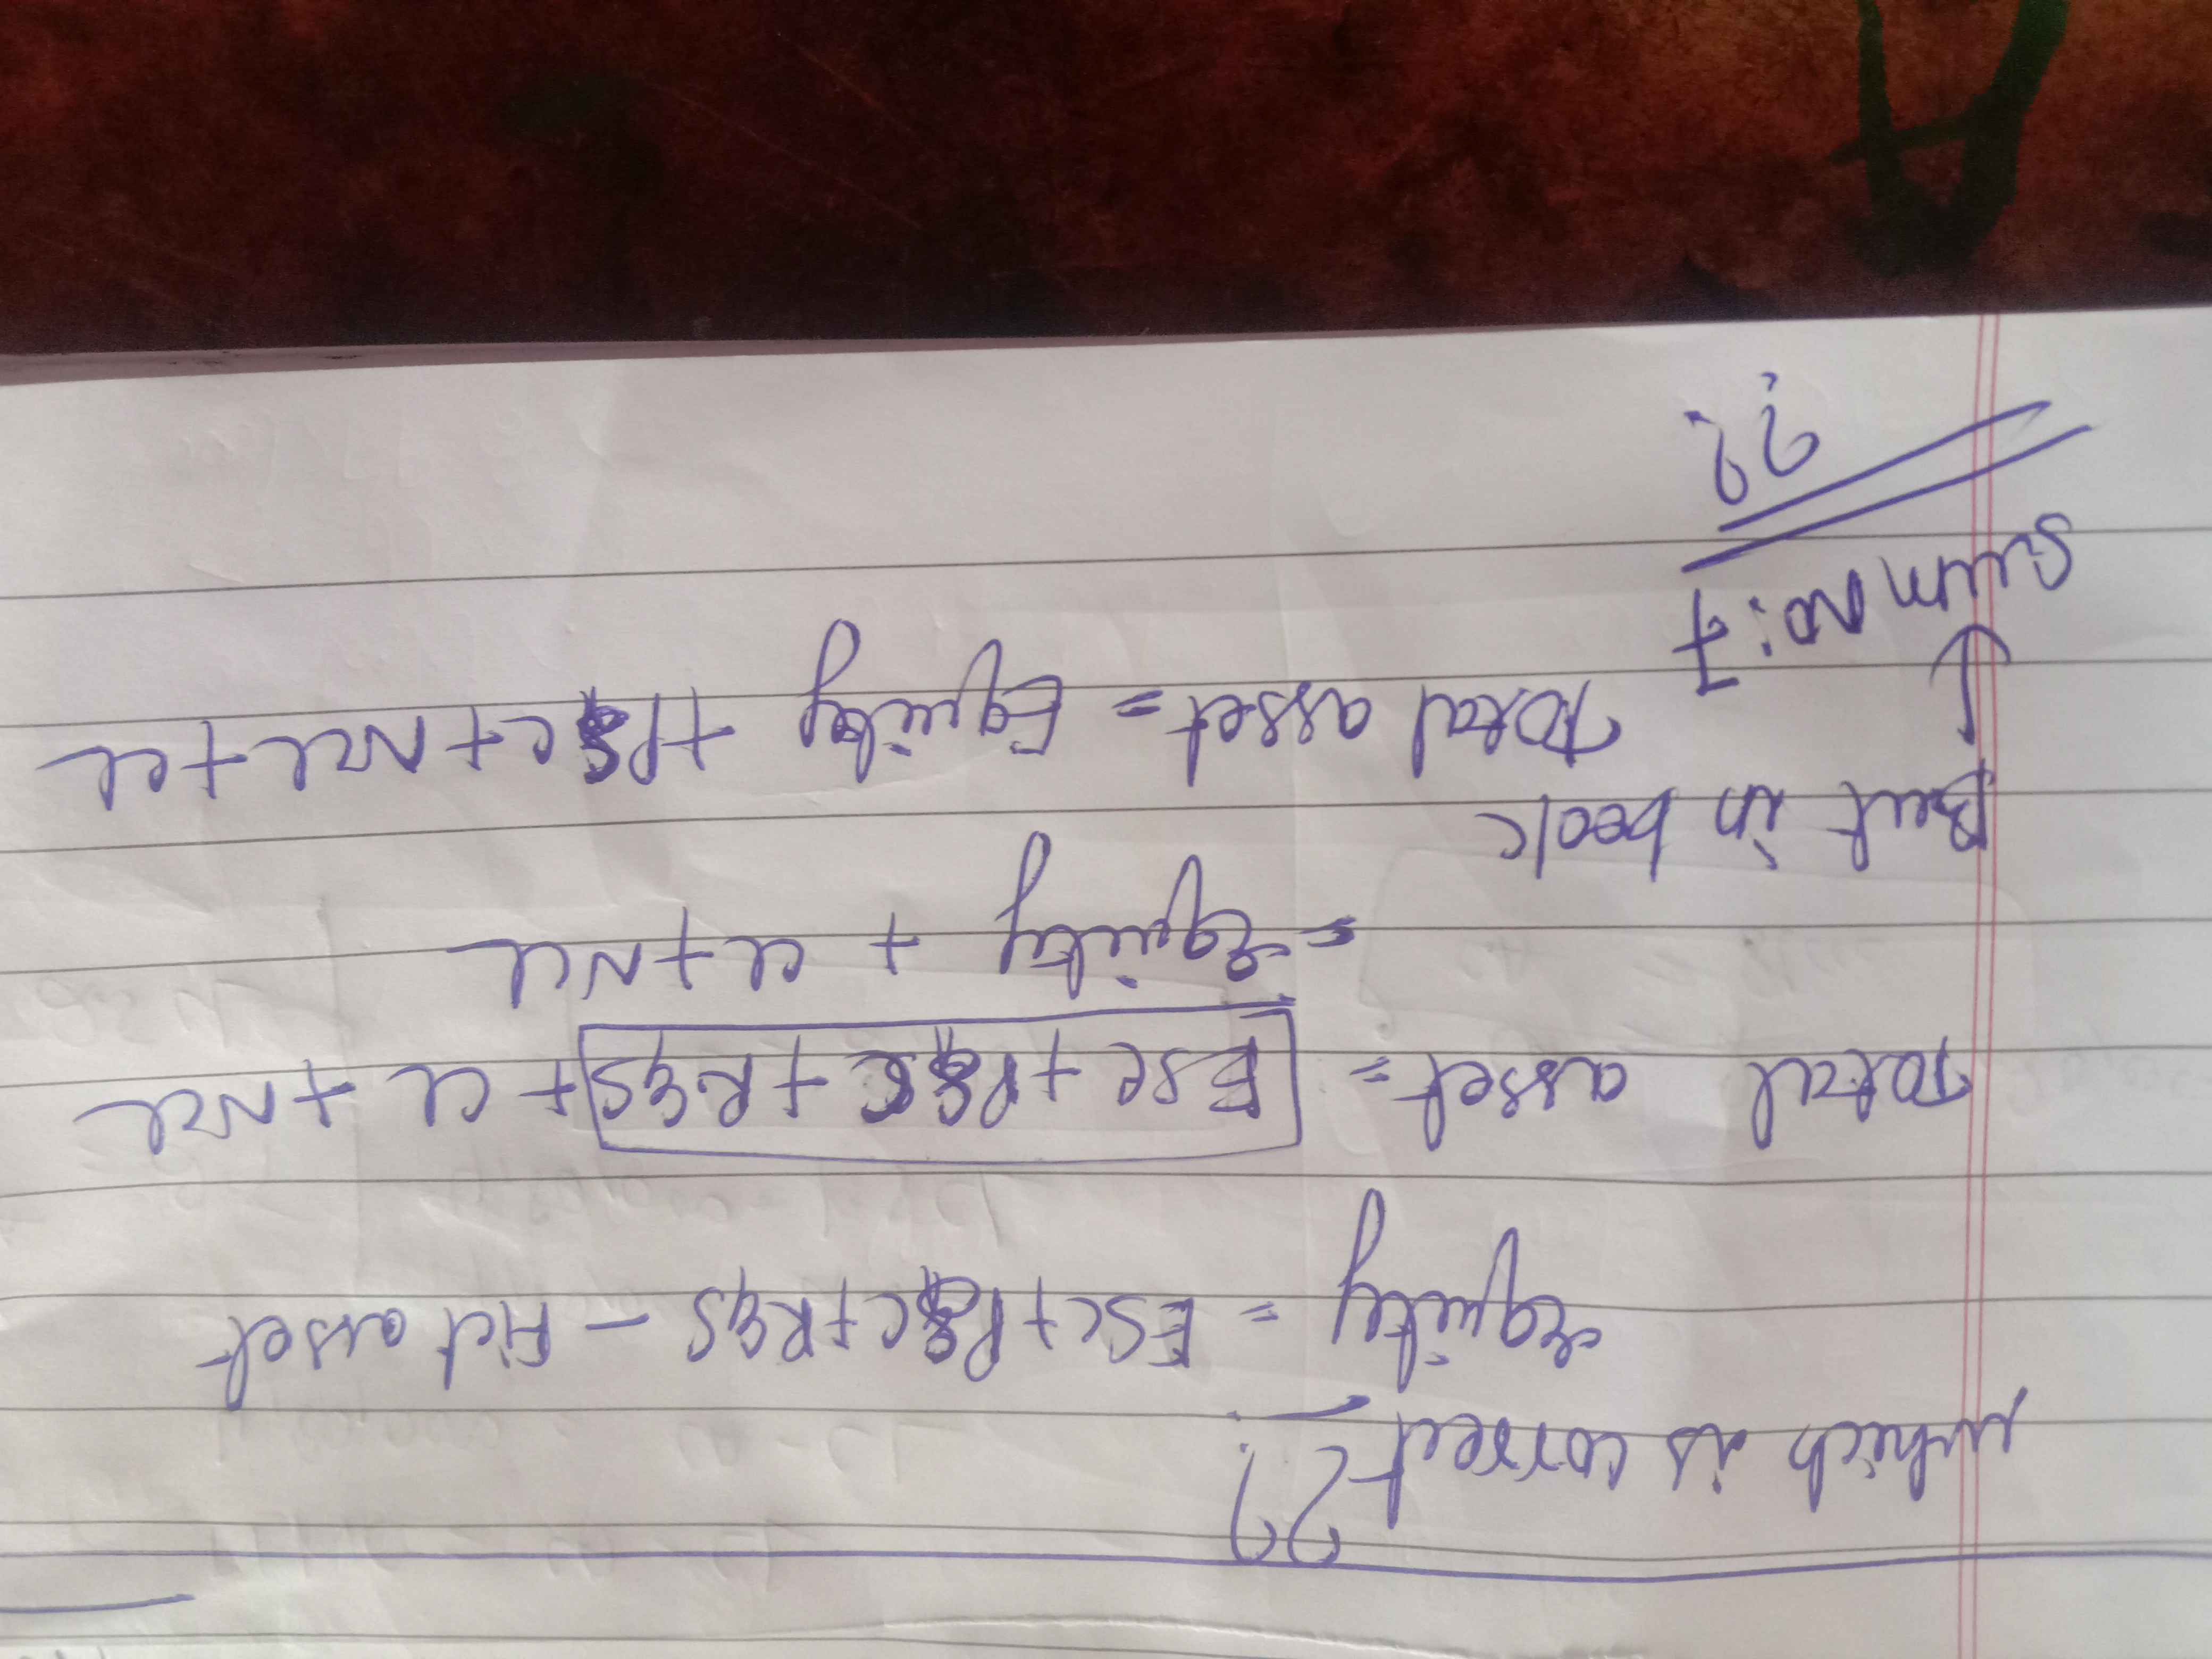 Which is correct??
equity = ESC+PSC+R&S - Fict asset
Total asset = ESC+PSC+R&S + CL + NCL
= equity + CL+NCL
But in book
Total asset = Equity +PSC+NCL+CL
Sum No: 7
??